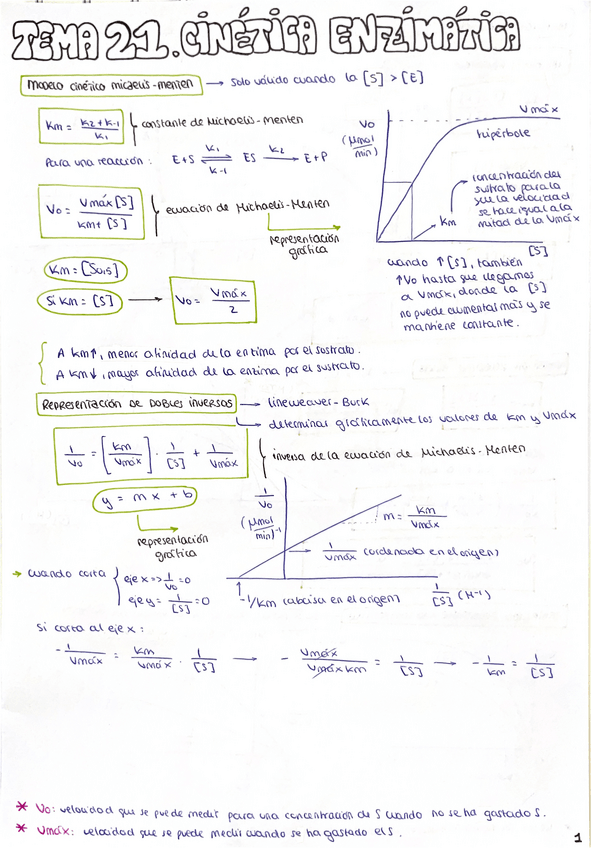 TEMA 21. CINÉTICA ENZIMÁTICA
Modelo cinético micaelis-menten → Solo válido cuando la [S] > [E]
Km = (K2 + K-1) / K1 constante de Michaelis-Menten
Para una reacción: E+S ⇌ (K1, K-1) ES → (K2) E+P
Vo = Vmáx [S] / Km + [S] ecuación de Michaelis-Menten
representación
gráfica
Vo
(μmol/min)
Vmáx
hipérbole
concentración del
sustrato para la
que la velocidad
se hace igual a la
mitad de la Vmáx
Km
[S]
Km = [S0,5]
Si Km = [S] → Vo = Vmáx / 2
cuando ↑[S], también
↑Vo hasta que llegamos
a Vmáx, donde la [S]
no puede aumentar más y se
mantiene constante.
A Km↑, menor afinidad de la enzima por el sustrato.
A Km↓, mayor afinidad de la enzima por el sustrato.
Representación de dobles inversos → Lineweaver-Burk
→ determinar gráficamente los valores de Km y Vmáx
1/Vo = [Km/Vmáx] · 1/[S] + 1/Vmáx inversa de la ecuación de Michaelis-Menten
y = mx + b
representación
gráfica
1/Vo
(μmol/min)⁻¹
m = Km/Vmáx
1/Vmáx (ordenada en el origen)
-1/Km (abcisa en el origen)
1/[S] (M⁻¹)
→ cuando corta
eje x => 1/Vo = 0
eje y = 1/[S] = 0
Si corta al eje x:
-1/Vmáx = Km/Vmáx · 1/[S] → - Vmáx/Vmáx Km = 1/[S] → -1/Km = 1/[S]
* Vo: velocidad que se puede medir para una concentración de S cuando no se ha gastado S.
* Vmáx: velocidad que se puede medir cuando se ha gastado el S.
1